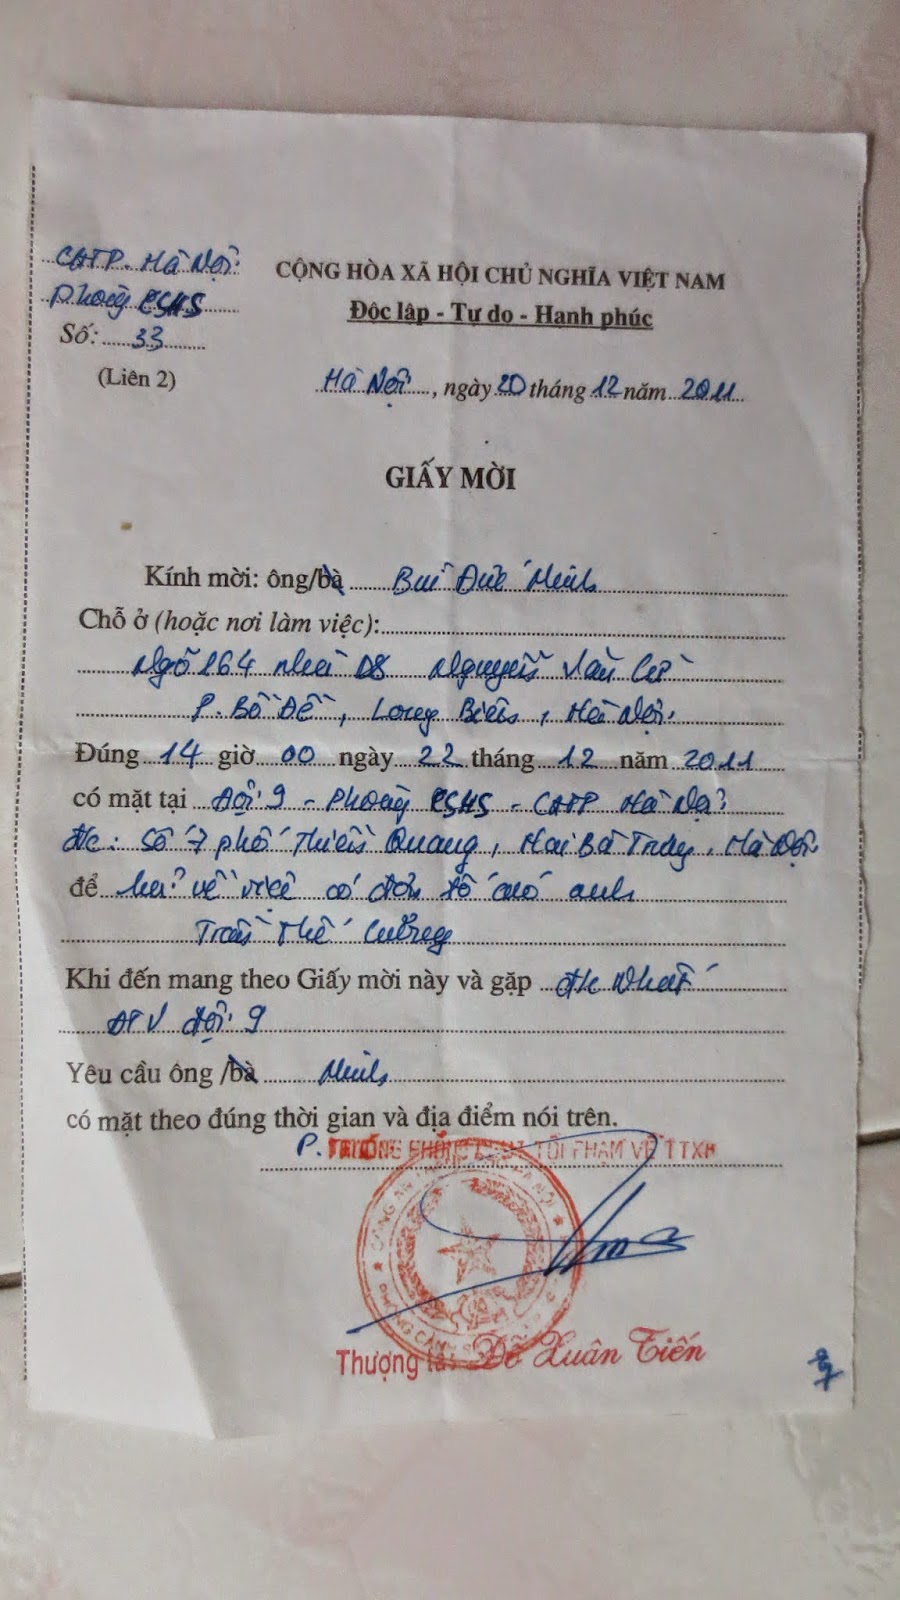 CATP. Hà Nội
Phòng CSHS
Số: 33
(Liên 2)
CỘNG HÒA XÃ HỘI CHỦ NGHĨA VIỆT NAM
Độc lập - Tự do - Hạnh phúc
Hà Nội, ngày 20 tháng 12 năm 2011
GIẤY MỜI
Kính mời: ông/bà Bùi Đức Minh
Chỗ ở (hoặc nơi làm việc):
Ngõ 264 nhà D8 Nguyễn Văn Cừ
P. Bồ Đề, Long Biên, Hà Nội.
Đúng 14 giờ 00 ngày 22 tháng 12 năm 2011
có mặt tại Đội 9 - Phòng CSHS - CATP Hà Nội
đc: Số 7 phố Thiền Quang, Hai Bà Trưng, Hà Nội
để hỏi về việc có đơn tố cáo anh
Trần Thế Cường
Khi đến mang theo Giấy mời này và gặp đ/c Nhất
ĐTV đội 9
Yêu cầu ông /bà Minh
có mặt theo đúng thời gian và địa điểm nói trên.
P. TRƯỞNG PHÒNG TỘI PHẠM VỀ TTXH
Thượng tá: Đỗ Xuân Tiến